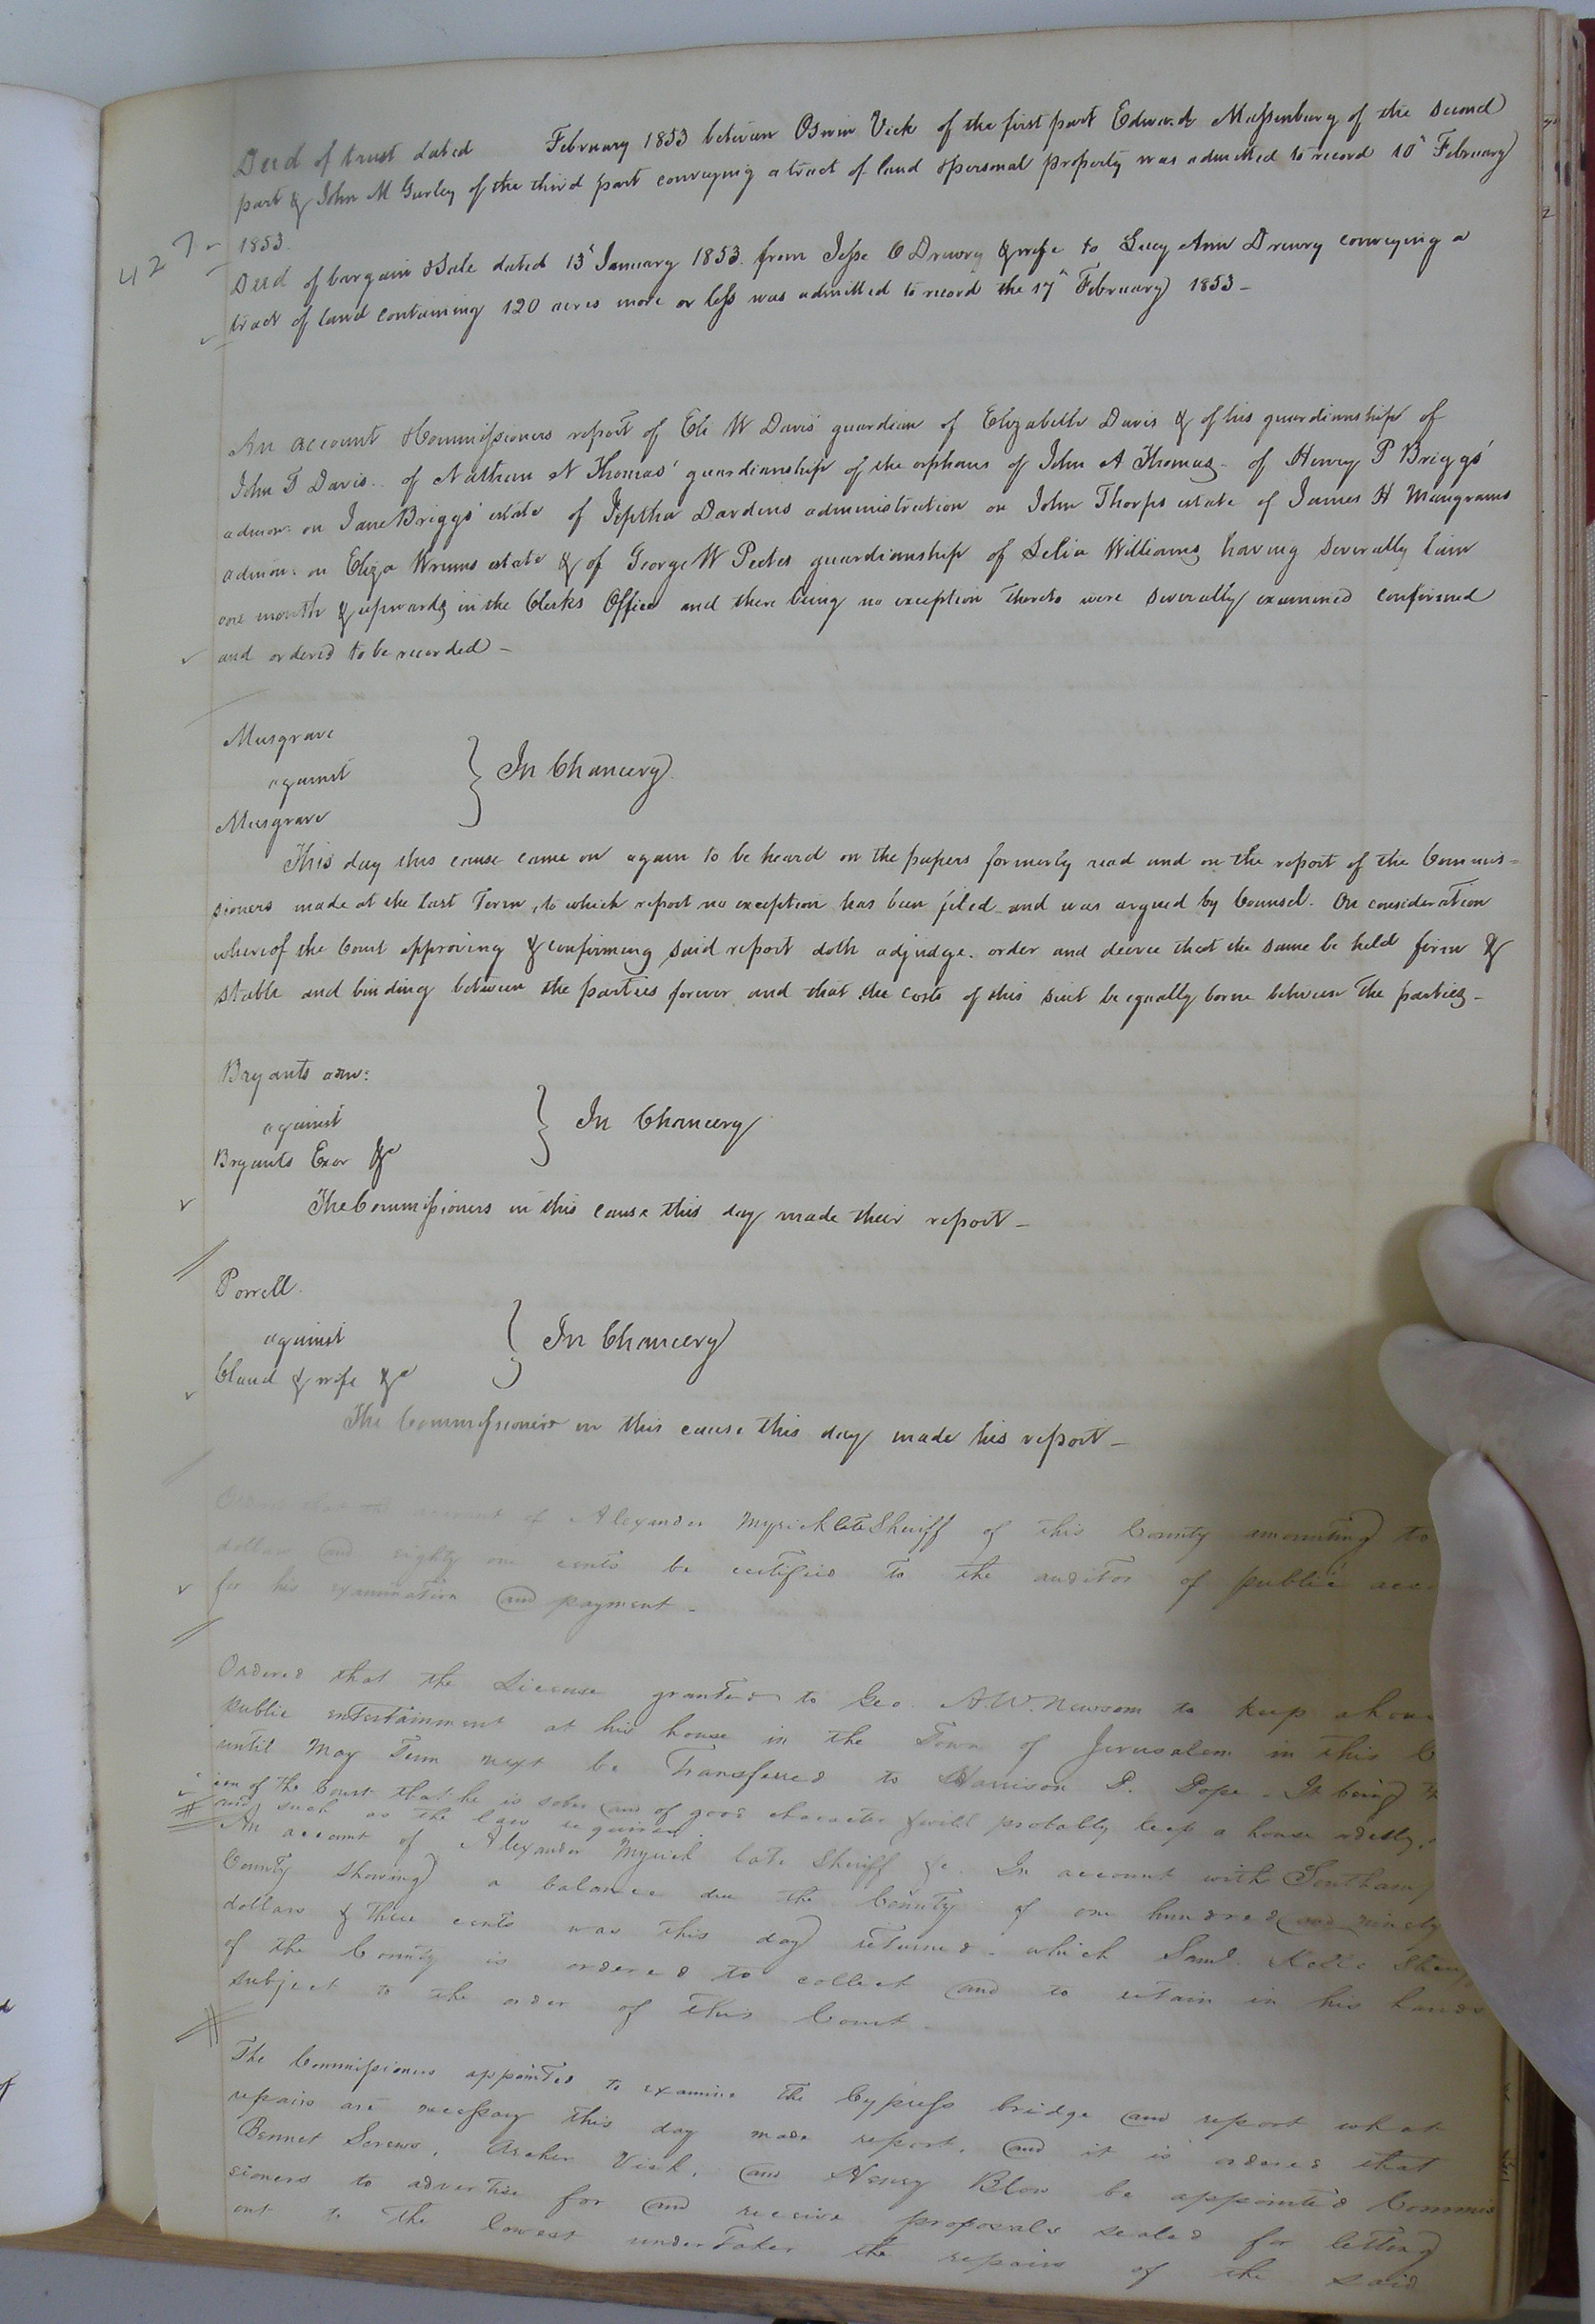 Deed of trust dated February 1853 between Oswin Vick of the first part Edward Massenburg of the second
part & John M Gurley of the third part conveying a tract of land & personal property was admitted to record 10" February
1853.
427
Deed of bargain & Sale dated 13" January 1853 from Jesse O Drewry & wife to Lucy Ann Drewry conveying a
tract of land containing 120 acres more or less was admitted to record the 17" February 1853 -
An account & Commissioners report of Eli W Davis' guardian of Elizabeth Davis & of his guardianship of
John T Davis. of Nathan N Thomas' guardianship of the orphans of John A Thomas - of Henry P Briggs'
admon: on Jane Briggs' estate of Jeptha Dardens administration on John Thorps estate of James H Mangrams
admon: on Eliza estate & of George W Peetes guardianship of Selia Williams having severally lain
one month & upwards in the Clerks Office and there being no exception thereto were severally examined confirmed
and ordered to be recorded -
Musgrave
against } In Chancery
Musgrave
This day this cause came on again to be heard on the papers formerly read and on the report of the Commis-
sioners made at the last Term, to which report no exception has been filed and was argued by Counsel. On consideration
whereof the Court approving & confirming said report doth adjudge. order and decree that the same be held firm &
stable and binding between the parties forever and that the costs of this suit be equally borne between the parties -
Bryants adm:
against } In Chancery
Bryants Exor &c
The Commissioners in this cause this day made their report -
Porrell
against } In Chancery
Claud & wife &c
The Commissioner in this cause this day made his report -
Ordered that the account of Alexander Myrick late Sheriff of this County amounting to
dollars and eighty one cents be certified to the auditor of public
for his examination and payment -
Ordered that the License granted to Geo. A W. Newsom to keep a
public entertainment at his house in the Town of Jerusalem in this
until May Term next be Transferred to Harrison P. Pope - It being
ion of the Court that he is sober and of good character & will probably keep a house orderly,
and such as the law requires.
An account of Alexander Myrick late Sheriff &c. In account with
County showing a balance due the County of one hundred and ninety
dollars & three cents was this day returned - which Saml. Kello
of the County is ordered to collect and to retain in his hands
subject to the order of this Court -
The Commissioners appointed to examine the Cypress bridge and report what
repairs are necessary this day made report, and it is ordered that
Bennet Screws, Archer Vick, and Henry Blow be appointed Commis
sioners to advertise for and receive proposals sealed for letting
out to the lowest undertaker the repairs of the said